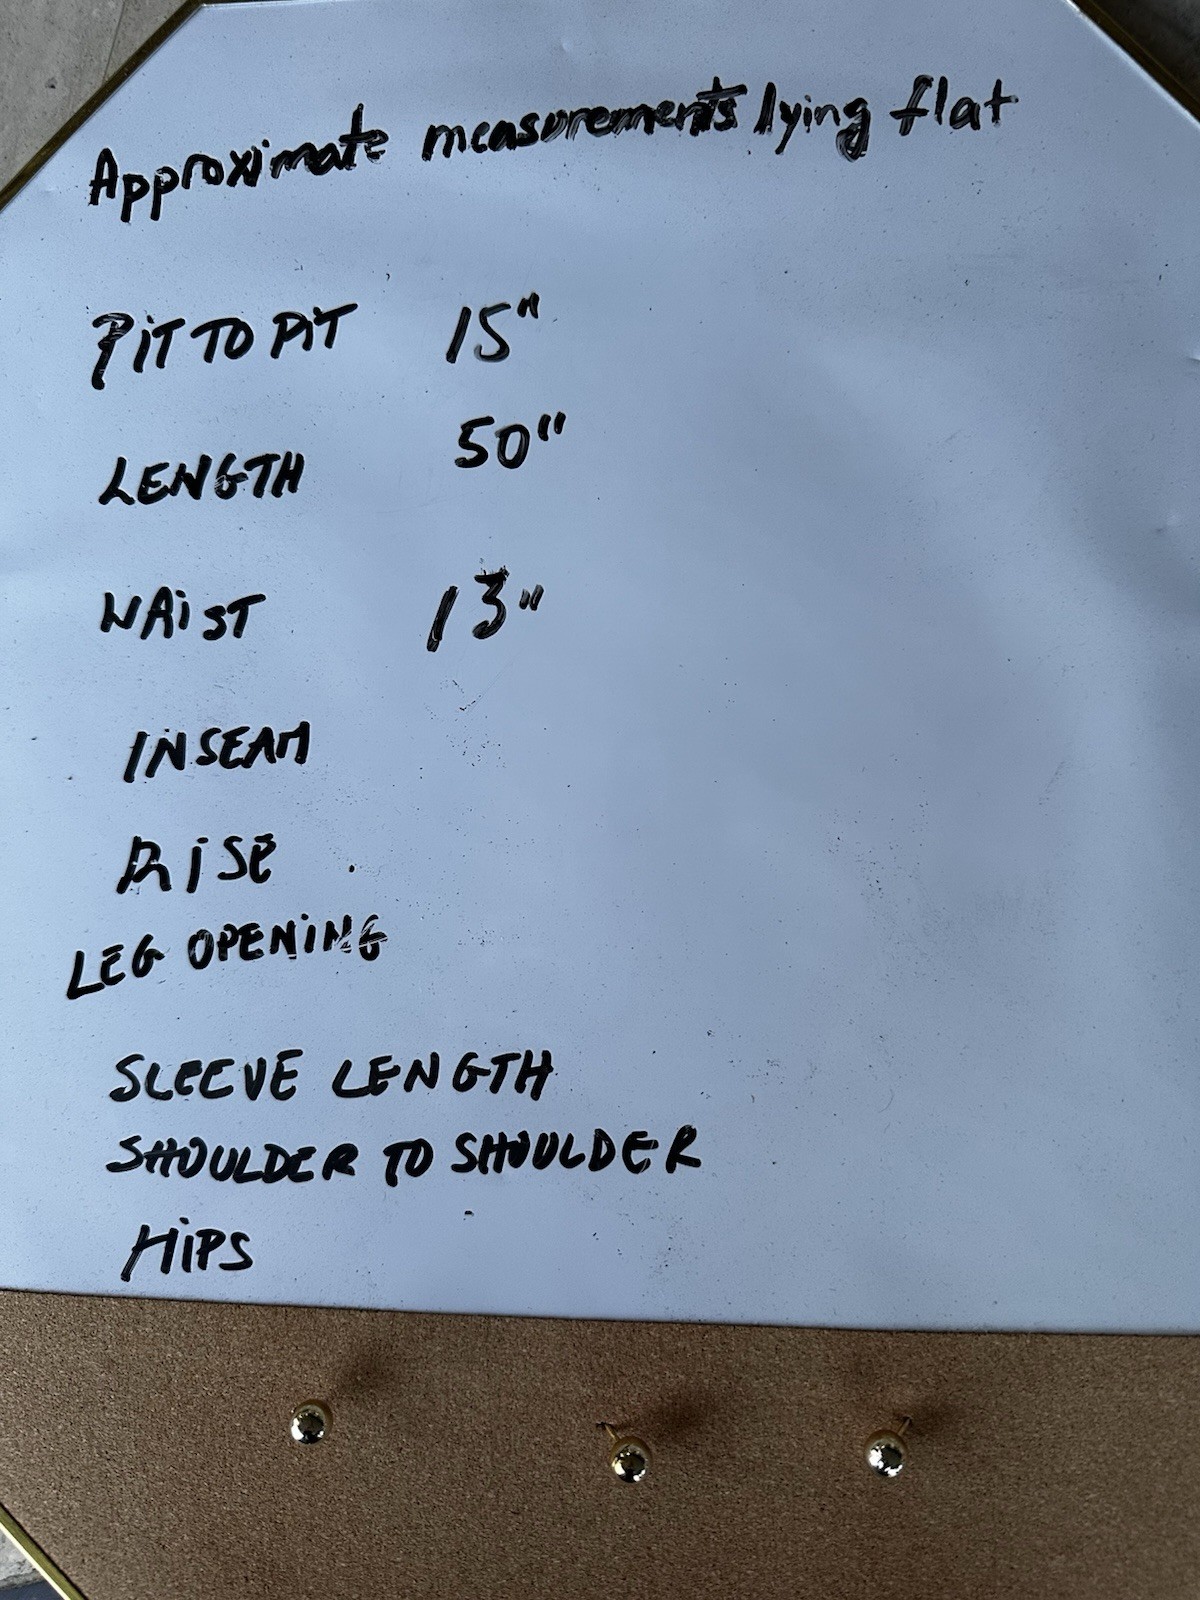 Approximate measurements lying flat
PiT TO PiT 15"
LENGTH 50"
WAiST 13"
INSEAM
RiSE
LEG OPENiNG
SLEEVE LENGTH
SHOULDER TO SHOULDER
HiPS